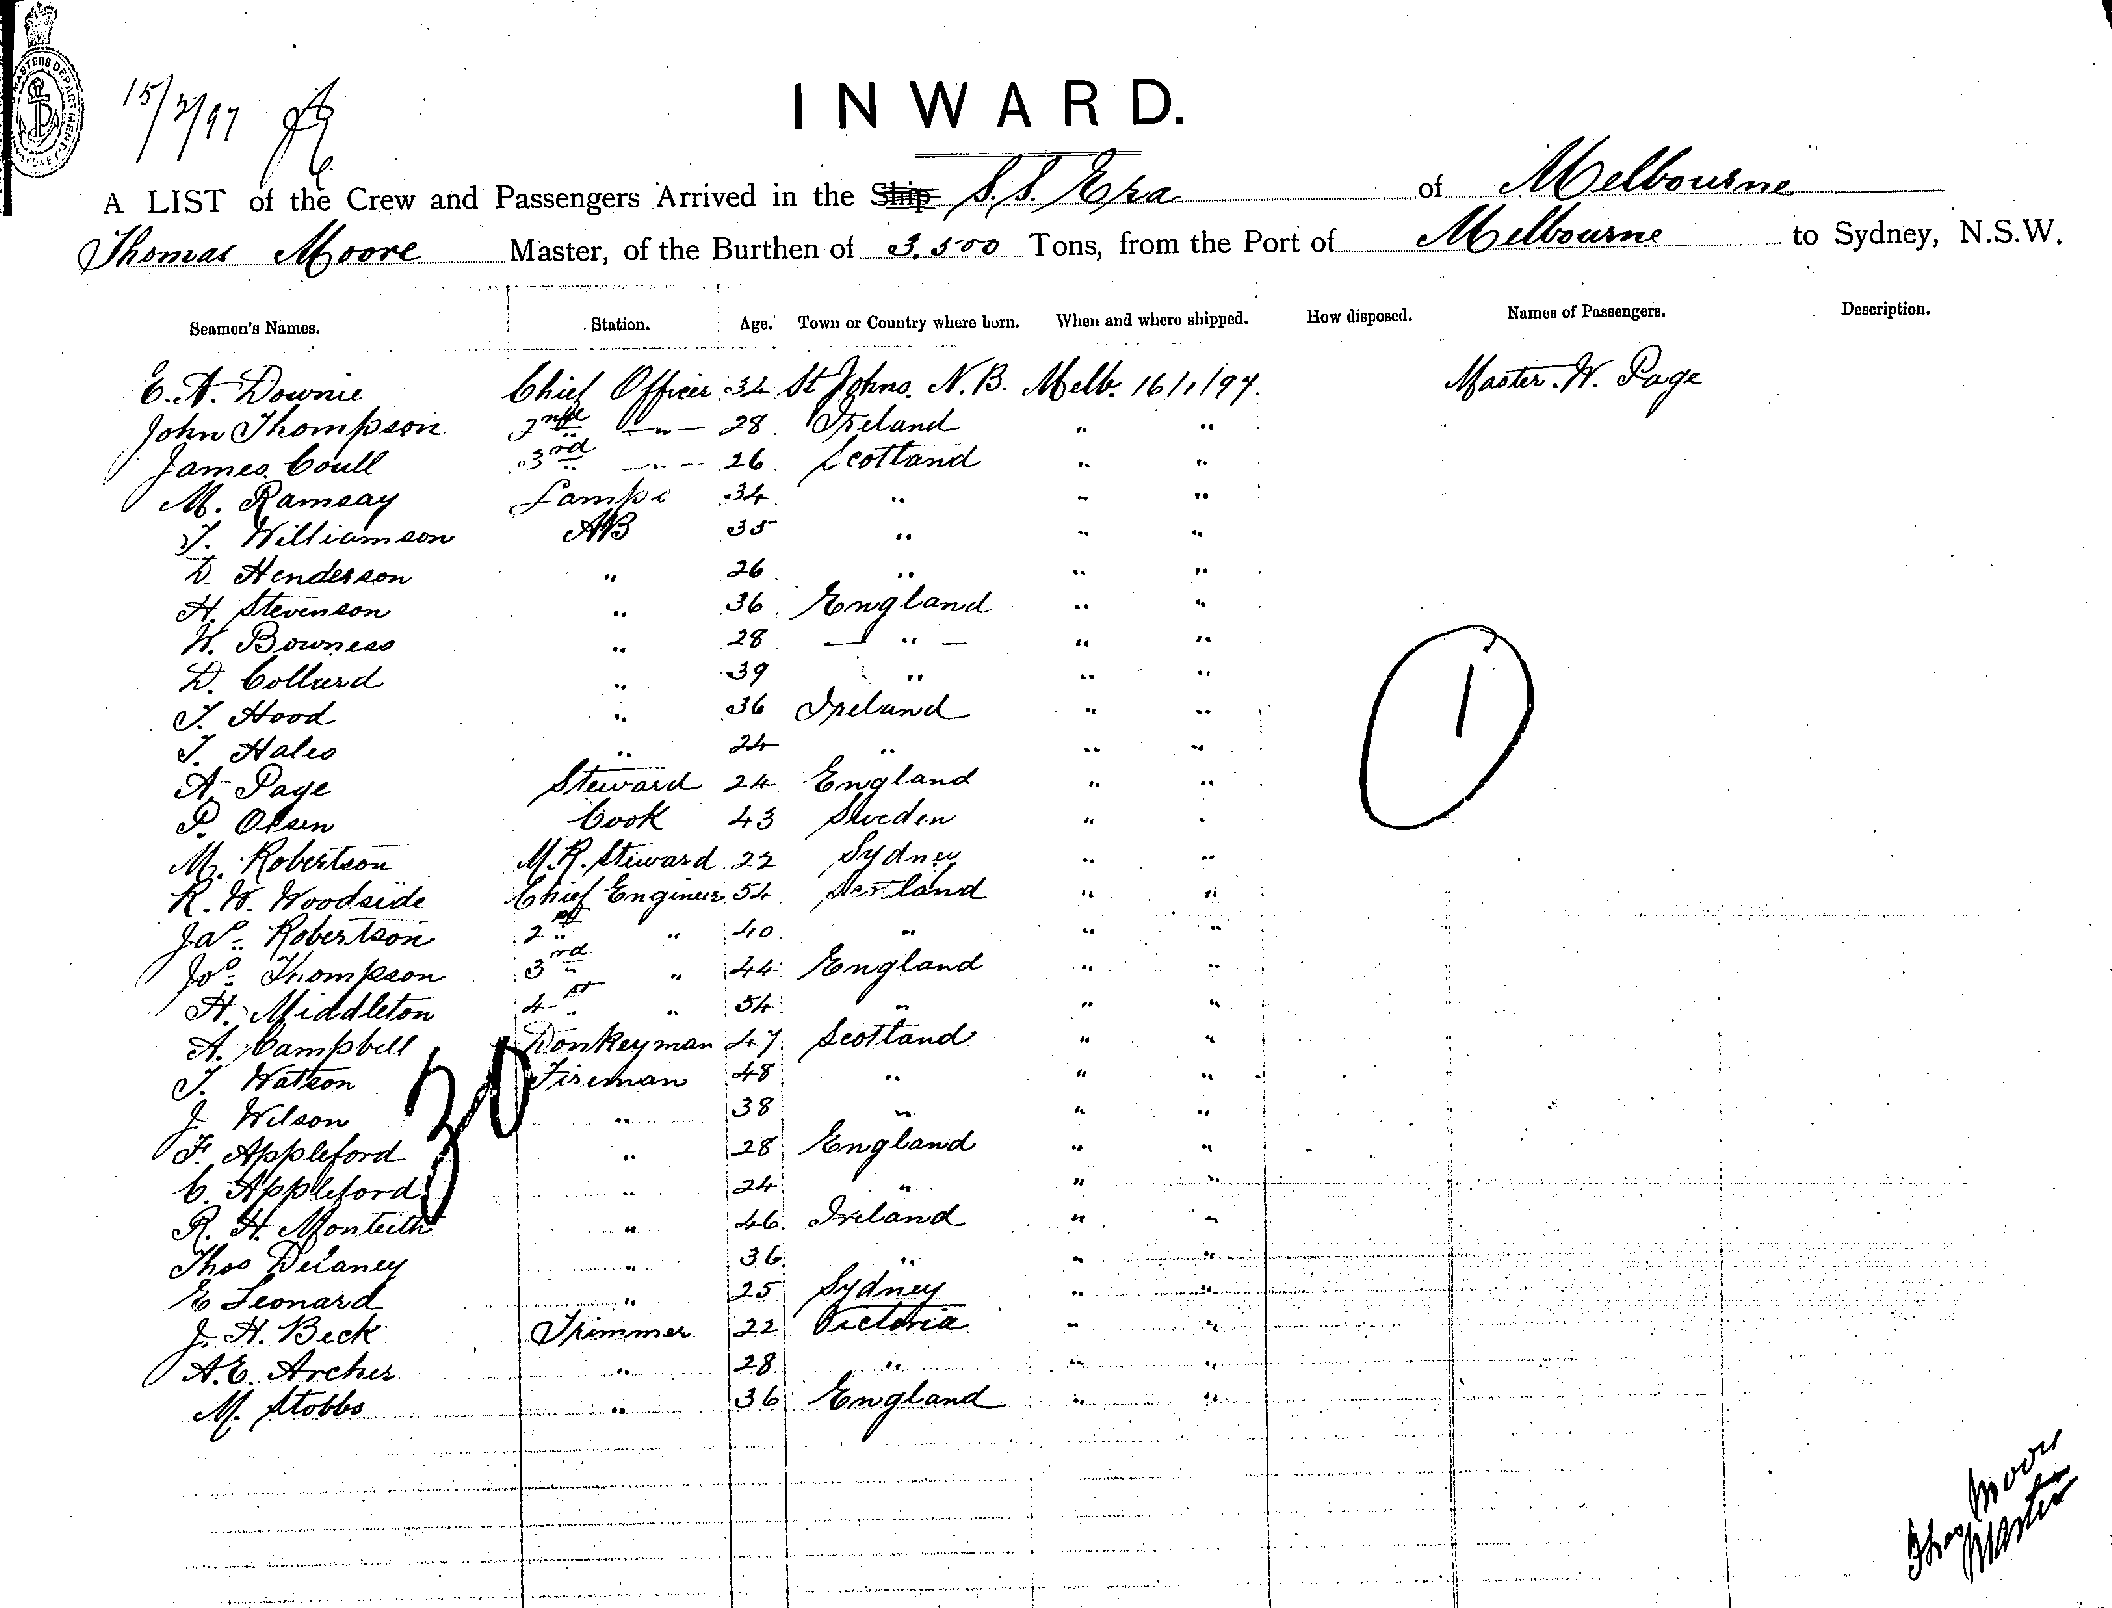 15/2/97
INWARD.
A LIST of the Crew and Passengers Arrived in the Ship S.S. Era of Melbourne
Thomas Moore Master, of the Burthen of 3.500 Tons, from the Port of Melbourne to Sydney, N.S.W.
Seamen's Names. Station. Age. Town or Country where born. When and where shipped. How disposed. Names of Passengers. Description.
E. A. Downie Chief Officer 32 St Johns. N.B. Melb. 16/1/97. Master. W. Page
John Thompson 2nd —"— 28 Ireland " "
James Coull 3rd —"— 26 Scotland " "
M. Ramsay Lamps 34 " " "
T. Williamson AB 35 " " "
D. Henderson " 26 " " "
H. Stevenson " 36 England " "
W. Bowness " 28 — " — " "
D. Collard " 39 " " "
T. Hood " 36 Ireland " "
T. Hales " 24 " " "
A. Page Steward 24 England " "
P. Olsen Cook 43 Sweden " "
M. Robertson M.R. Steward 22 Sydney " "
R. W. Woodside Chief Engineer 54 Scotland " "
Jas. Robertson 2nd " 40 " " "
Jos. Thompson 3rd " 44 England " "
H. Middleton 4th " 54 " " "
A. Campbell Donkeyman 47 Scotland " "
T. Watson Fireman 48 " " "
J. Wilson " 38 " " "
F. Appleford " 28 England " "
C. Appleford " 24 " " "
R. H. Monteith " 46 Ireland " "
Thos Delaney " 36 " " "
E Leonard " 25 Sydney " "
J. H. Beck Trimmer 22 Victoria " "
A. E. Archer " 28 " " "
M. Stobbs " 36 England " "
30
1
Thos Moore
Master